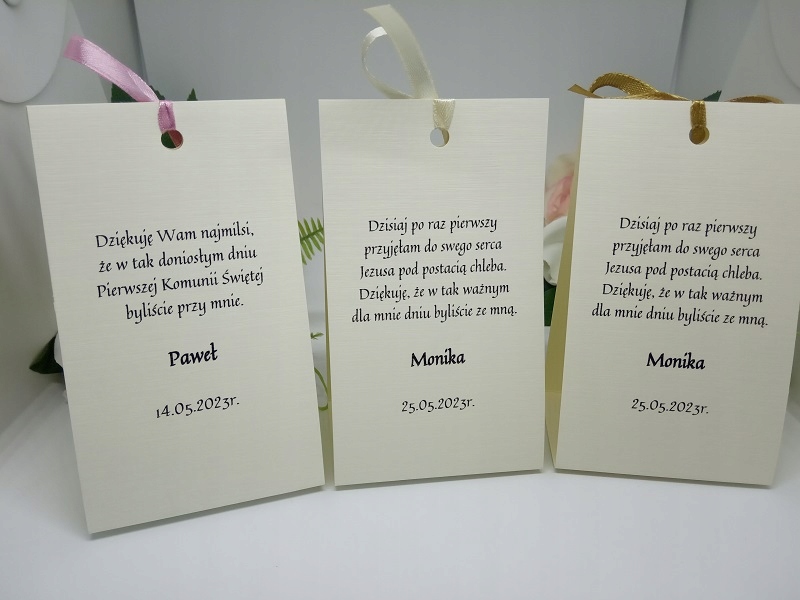 Dziękuję Wam najmilsi,
że w tak doniosłym dniu
Pierwszej Komunii Świętej
byliście przy mnie.
Paweł
14.05.2023r.
Dzisiaj po raz pierwszy
przyjęłam do swego serca
Jezusa pod postacią chleba.
Dziękuję, że w tak ważnym
dla mnie dniu byliście ze mną.
Monika
25.05.2023r.
Dzisiaj po raz pierwszy
przyjęłam do swego serca
Jezusa pod postacią chleba.
Dziękuję, że w tak ważnym
dla mnie dniu byliście ze mną.
Monika
25.05.2023r.